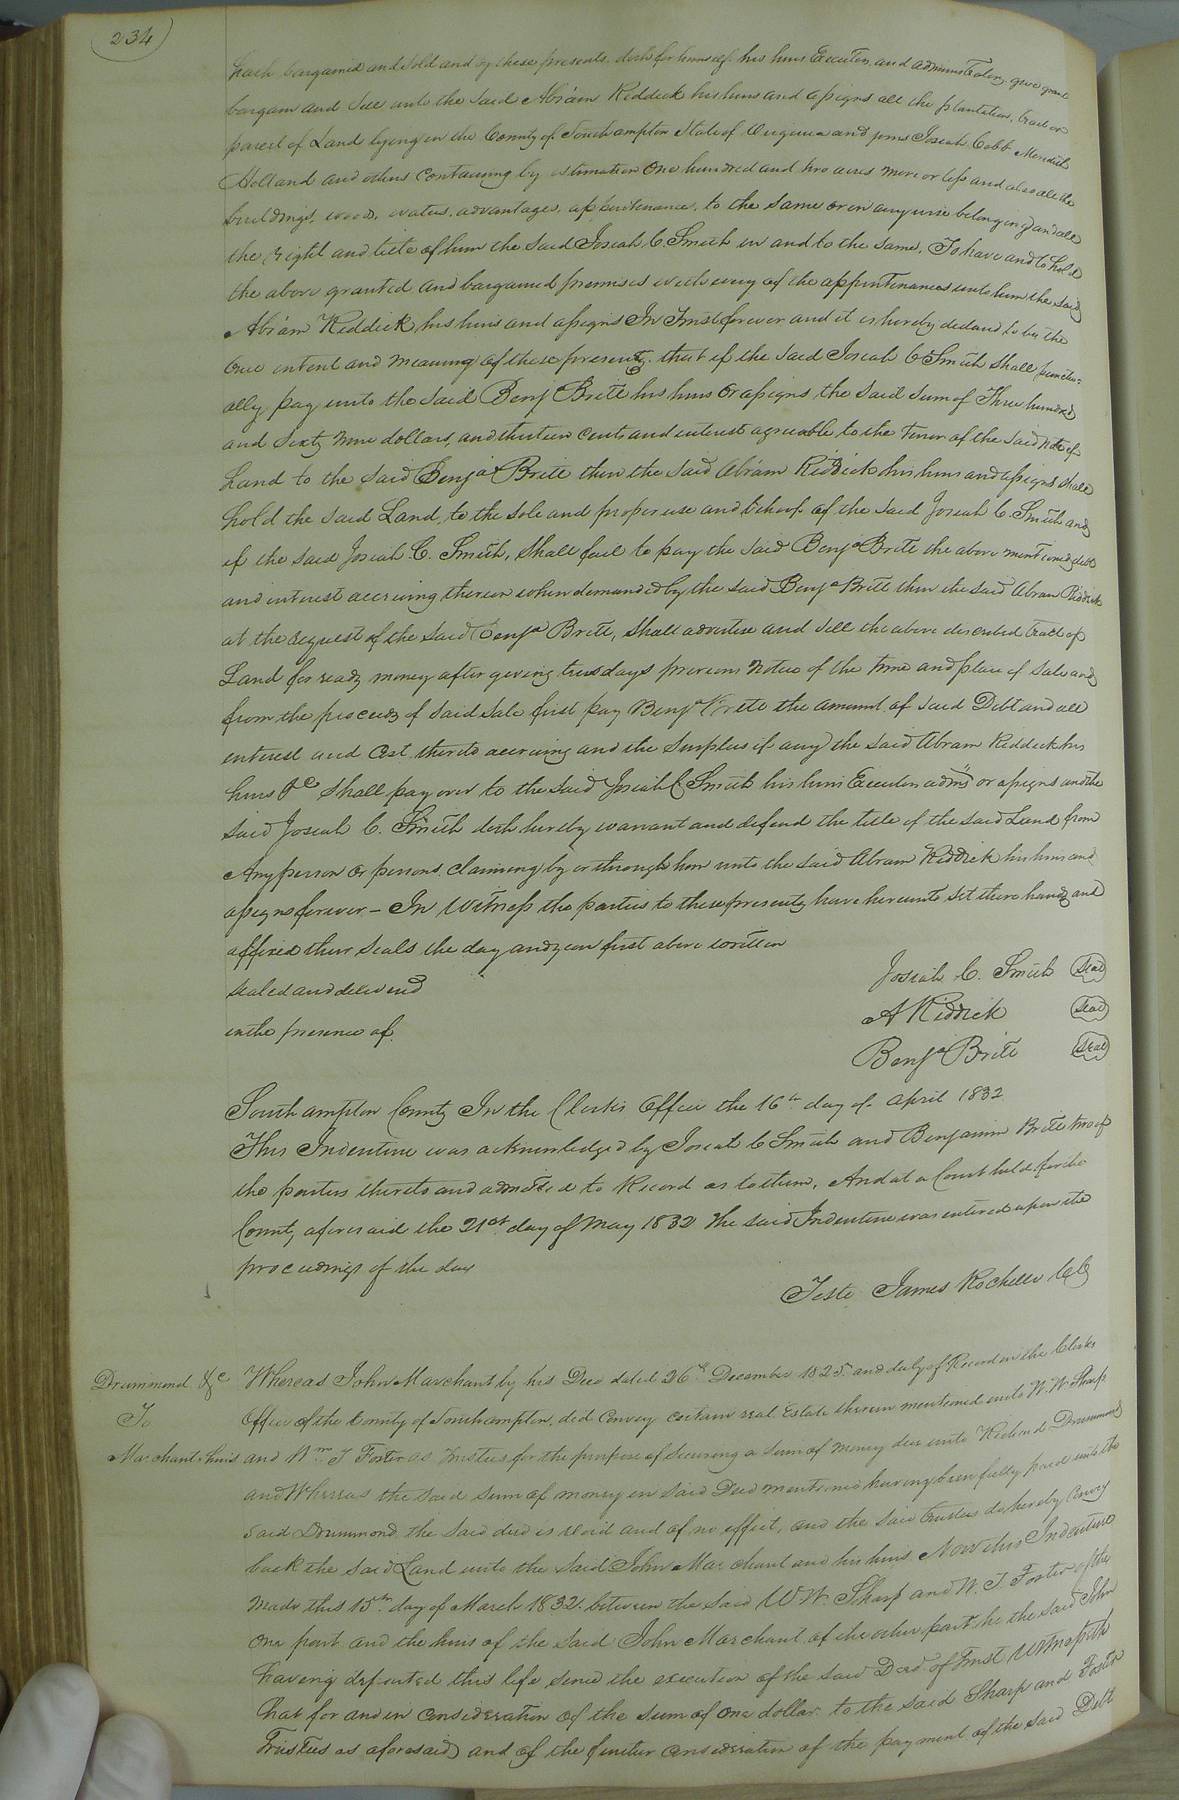 234
hath bargained and Sold and by these presents doth for himself his heirs Executors and administrators give grant
bargain and Sell unto the Said Abram Riddick his heirs and assigns all the plantation, tract or
parcel of Land lying in the County of Southampton State of Virginia and joins Josiah Cobb Meredith
Holland and others containing by estimation One hundred and two acres more or less and also all the
buildings, woods, waters, advantages, appurtenances, to the same or in any wise belonging and all
the right and title of him the Said Josiah C Smith in and to the same, To have and to hold
the above granted and bargained premises with every of the appurtenances unto him the said
Abram Riddick his heirs and assigns In Trust forever and it is hereby declared to be the
true intent and meaning of these presents, that if the Said Josiah C Smith Shall punctu-
ally pay unto the Said Benj Brite his heirs or assigns the Said Sum of Three hundred
and Sixty Nine dollars, and thirteen cents and interest agreeable to the tenor of the Said Note of
hand to the Said Benja Brite then the Said Abram Riddick his heirs and assigns Shall
hold the Said Land, to the Sole and proper use and behoof of the Said Josiah C. Smith and
if the Said Josiah C. Smith, Shall fail to pay the Said Benja Brite the above mentioned debt
and interest accruing thereon when demanded by the Said Benja Brite then the Said Abram Riddick
at the request of the Said Benja Brite, Shall advertise and Sell the above described tract of
Land for ready money after giving days previous Notice of the time and place of Sale and
from the proceeds of Said Sale first pay Benja Brite the amount of Said Debt and all
interest and Cost thereto accruing and the Surplus if any the Said Abram Riddick his
heirs &c Shall pay over to the Said Josiah C Smith his heirs Executors admrs or assigns and the
Said Josiah C. Smith doth hereby warrant and defend the title of the Said Land from
Any person or persons Claiming by or through him unto the Said Abram Riddick his heirs and
assigns forever - In Witness the parties to these presents have hereunto Set there hands and
affixed their Seals the day and year first above written
Sealed and delivered
in the presence of
Josiah C. Smith Seal
A Riddick Seal
Benja Brite Seal
Southampton County In the Clerks Office the 16th day of April 1832
This Indenture was acknowledged by Josiah C Smith and Benjamin Brite two of
the parties thereto and admitted to Record as to them, And at a Court held for the
County aforesaid the 21st day of May 1832 The Said Indenture was entered upon the
proceedings of the day
Teste James Rochelle CC
Drummond &c
To
Marchants heirs
Whereas John Marchant by his Deed dated 26th December 1825 and duly of Record in the Clerks
Office of the County of Southampton, did Convey certain real Estate therein mentioned unto W. W. Sharp
and Wm. J Foster as Trustees for the purpose of Securing a Sum of Money due unto Richard Drummond
and Whereas the said Sum of money in said Deed mentioned having been fully paid unto the
Said Drummond the Said deed is void and of no effect, and the Said trustees do hereby Convey
back the Said Land unto the Said John Marchant and his heirs Now this Indenture
Made this 15th day of March 1832 between the Said W W. Sharp and W. J. Foster of the
One part and the heirs of the Said John Marchant of the other part he the Said John
having departed this life Since the execution of the Said Deed of Trust Witnesseth
that for and in Consideration of the Sum of One dollar to the Said Sharp and Foster
Trustees as aforesaid and of the further Consideration of the payment of the Said Debt